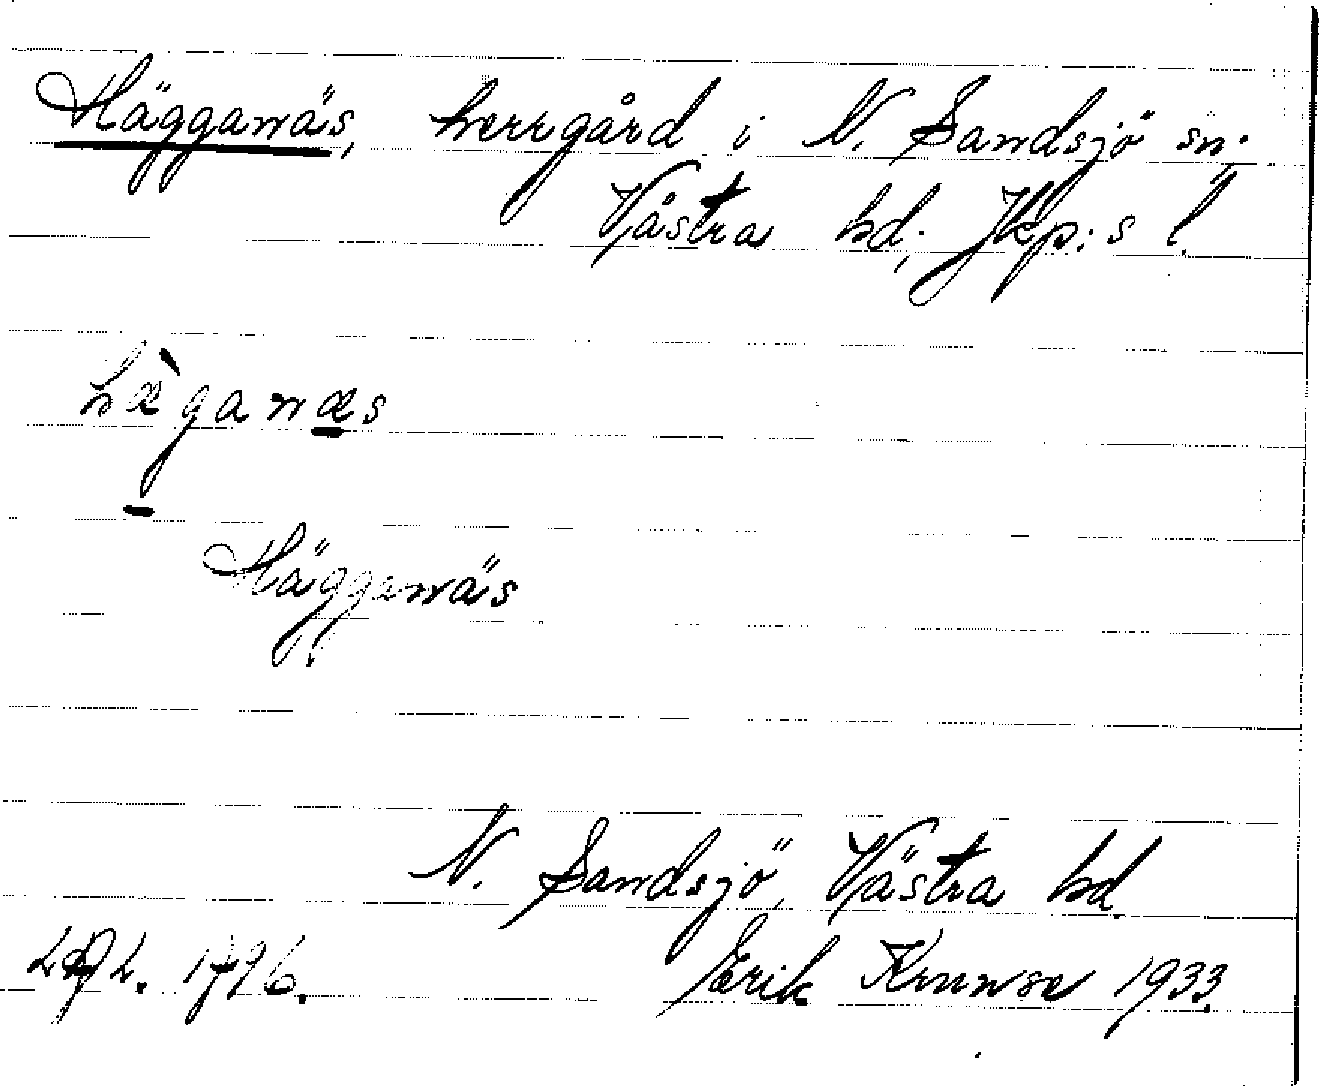 Hägganäs, herrgård i N. Sandsjö sn;
Västra hd; Jkp:s l.
hæ̀ganæs
Hägganäs
N. Sandsjö, Västra hd.
1796. Erik Krunse 1933.